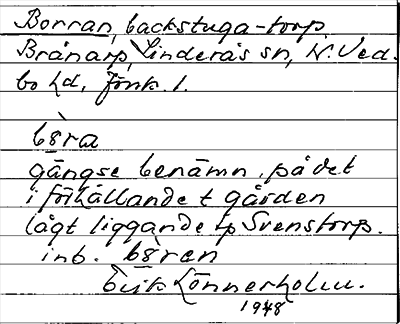 Borran, backstuga-torp
Brånarp, Linderås sn, N. Ved.
bo hd, Jönk. l.
bɞ̀ra
gängse benämn. på det
i förhållande t gården
lågt liggande tp Svenstorp.
inb. bɞ̀ren
Erik Lönnerholm.
1948